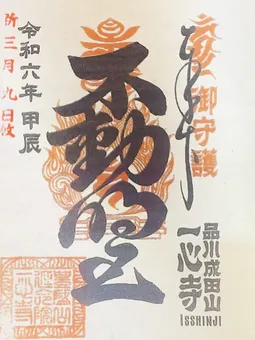 奉拝
御守護
品川成田山
一心寺
ISSHINJI
不動明王
令和六年 甲辰
三月九日